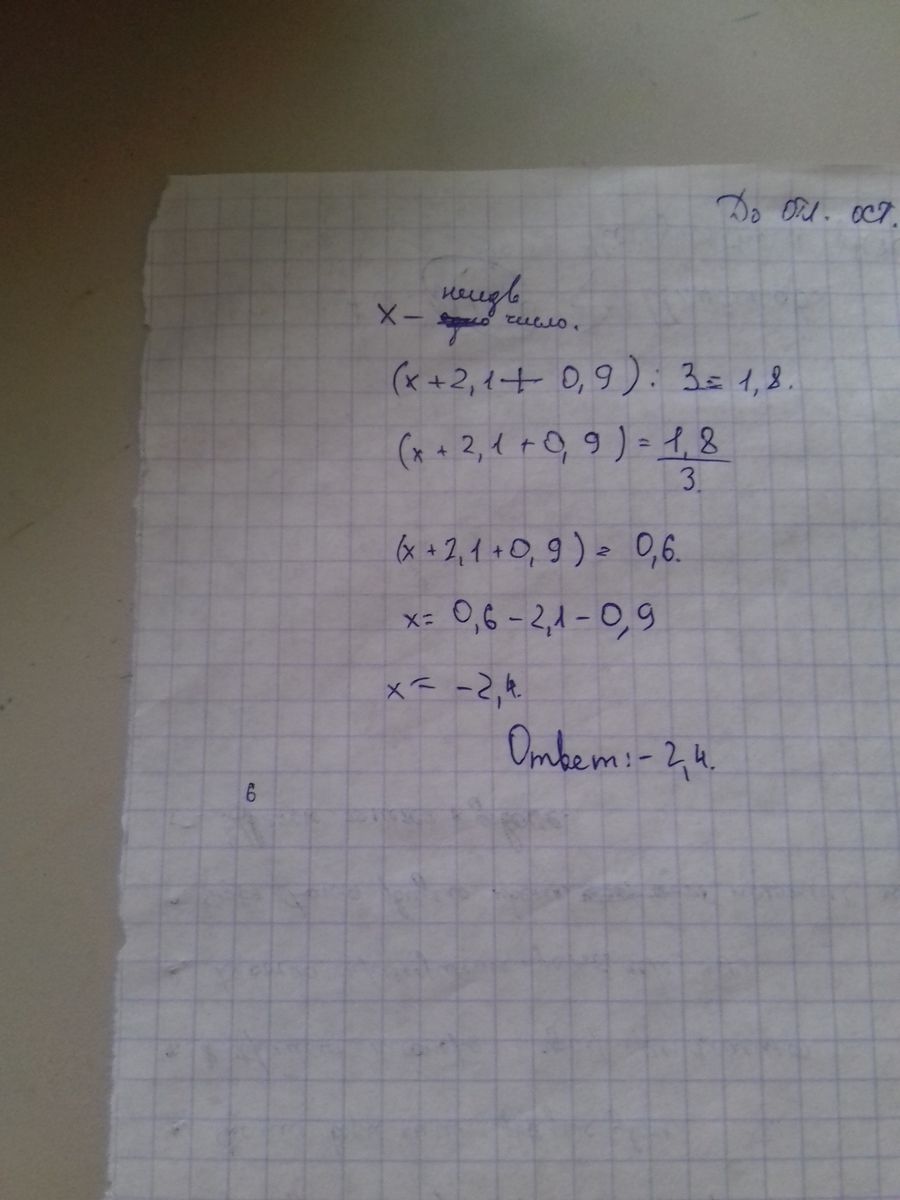 До отл. ост.
неизв
x – число.
(x + 2,1 + 0,9) : 3 = 1,8.
(x + 2,1 + 0,9) = 1,8
3.
(x + 2,1 + 0,9) = 0,6.
x = 0,6 – 2,1 – 0,9
x = – 2,4.
Ответ: – 2,4.
6